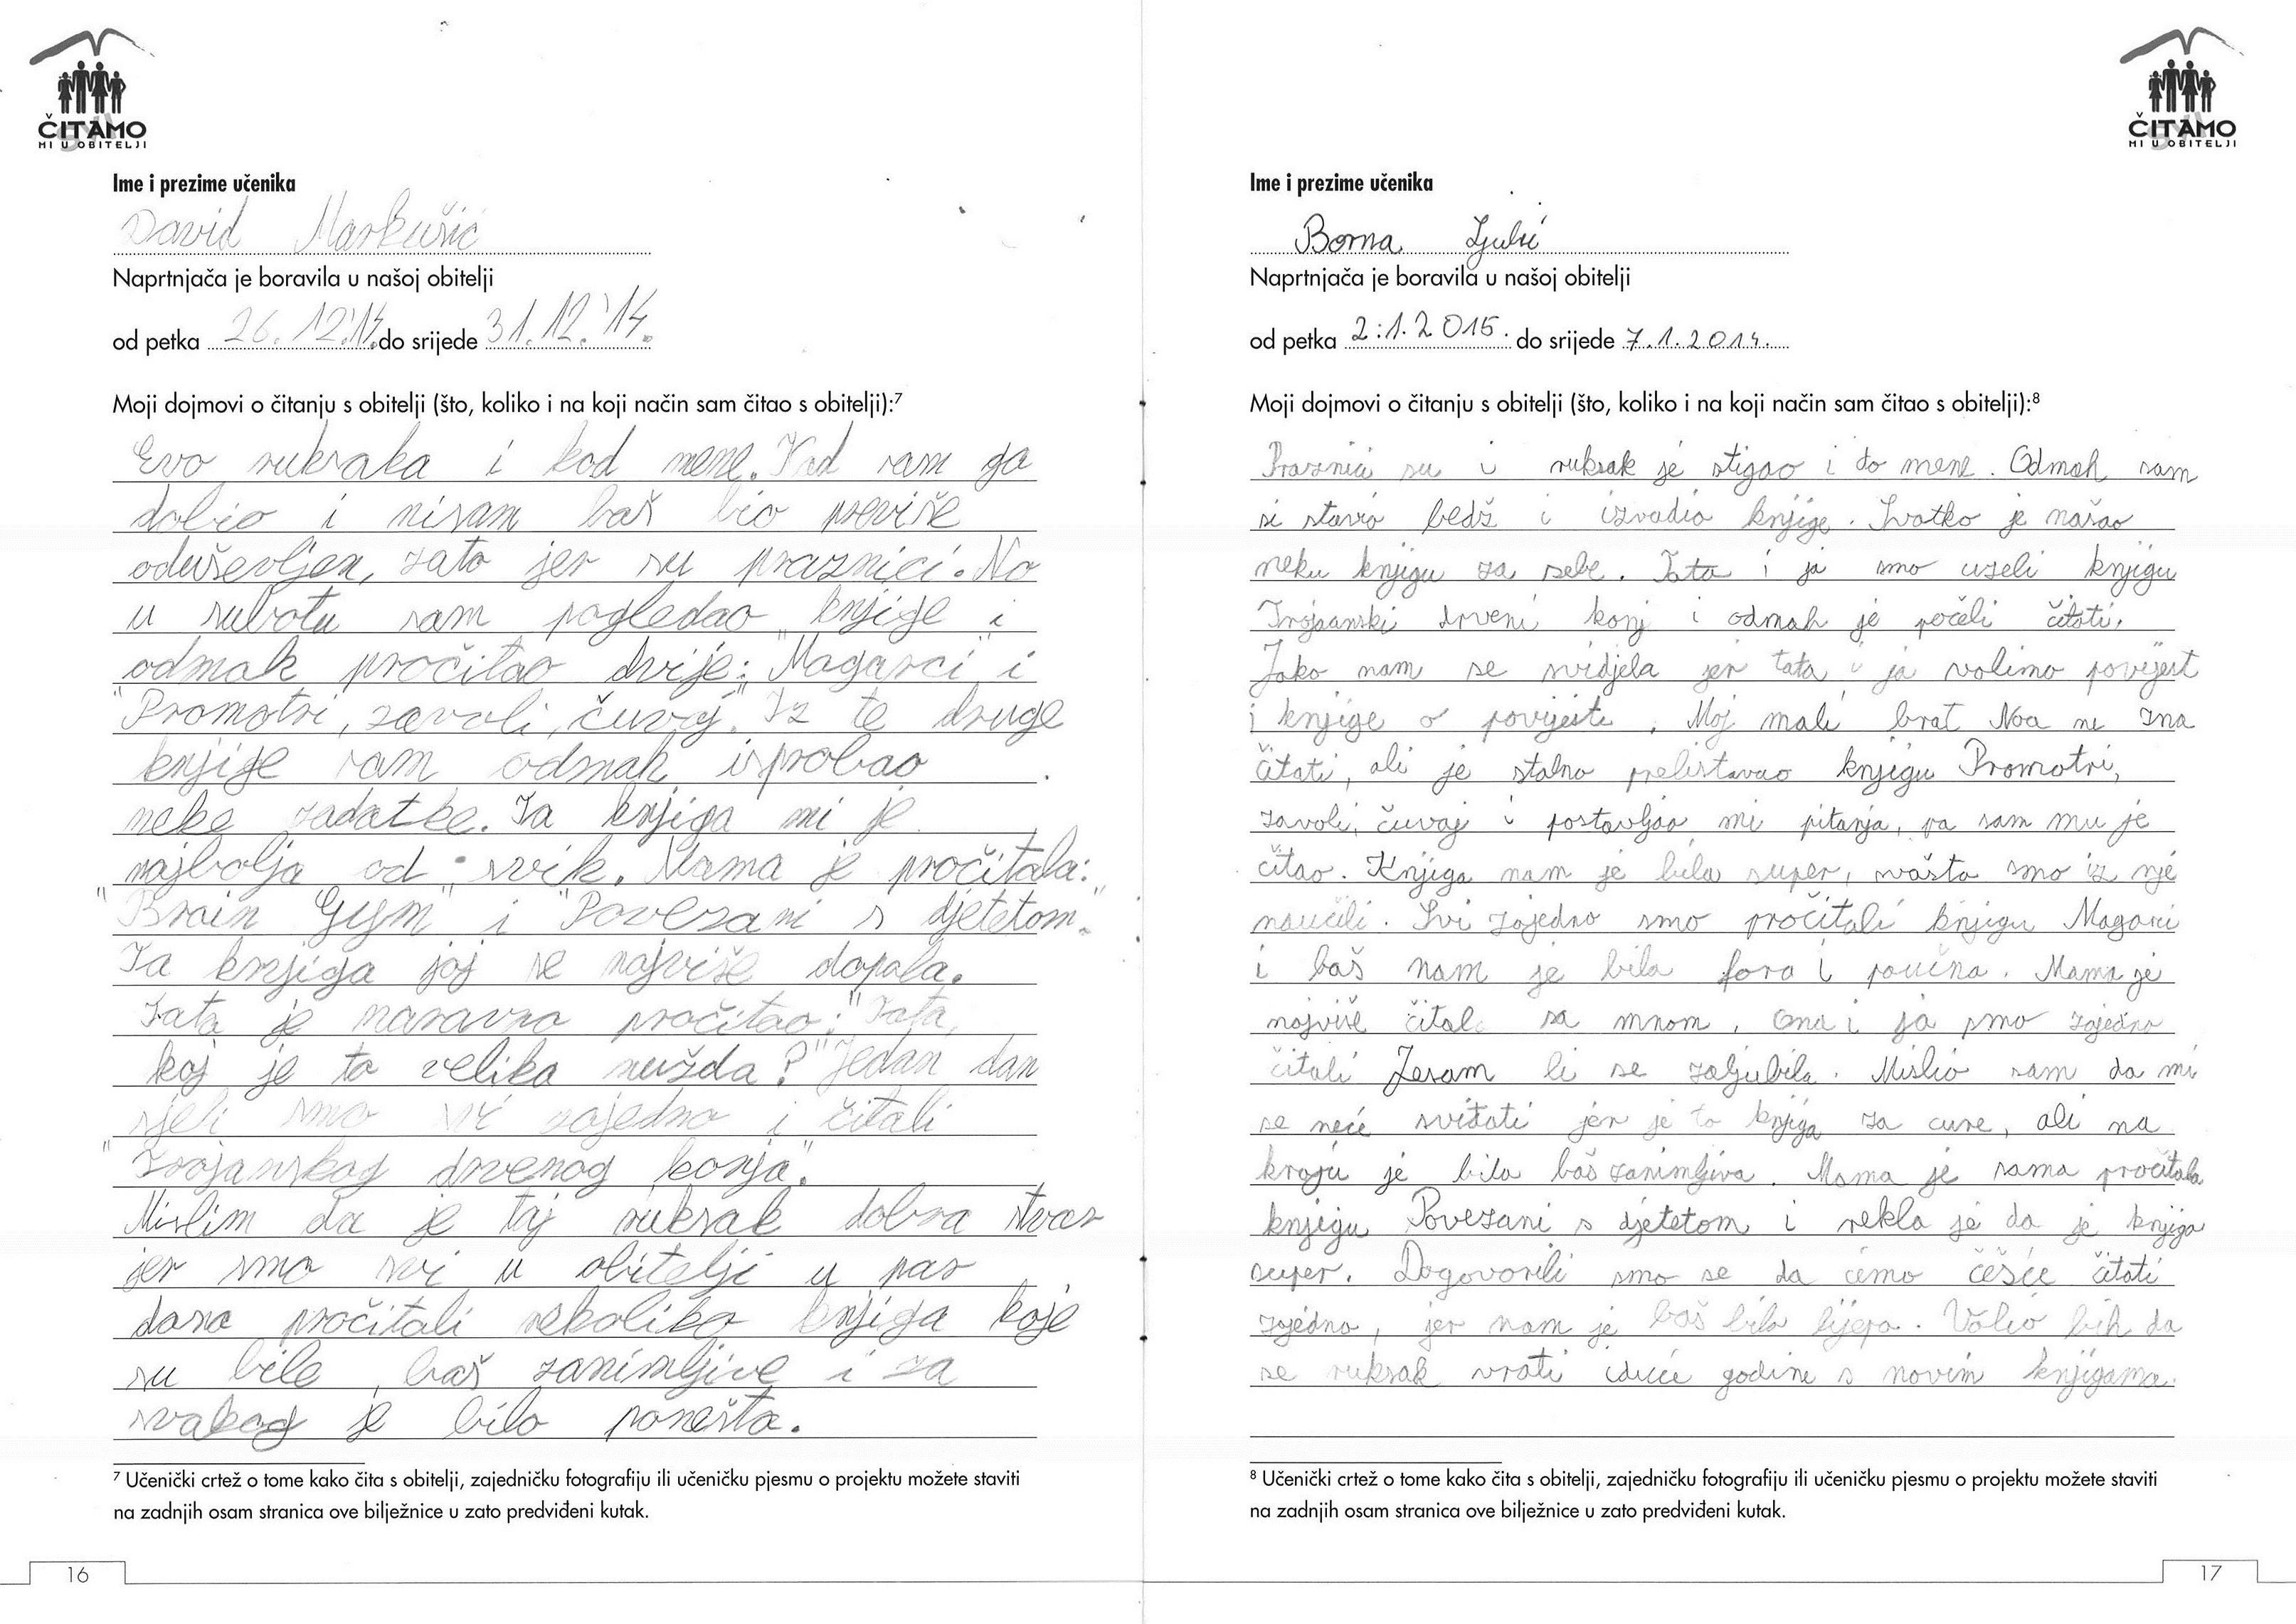 ČITAMO
MI U OBITELJI
Ime i prezime učenika
David Markušić
Naprtnjača je boravila u našoj obitelji
od petka 26.12.'14. do srijede 31.12.'14.
Moji dojmovi o čitanju s obitelji (što, koliko i na koji način sam čitao s obitelji):⁷
Evo ruksaka i kod mene. Kad sam ga
dobio i nisam baš bio previše
oduševljen, zato jer su praznici. No
u subotu sam pogledao knjige i
odmah pročitao dvije: "Magarci" i
"Promotri, zavoli, čuvaj". Iz te druge
knjige sam odmah isprobao
neke zadatke. Ta knjiga mi je
najbolja od svih. Mama je pročitala:
"Brain Gym" i "Povezani s djetetom."
Ta knjiga joj se najviše dopala.
Tata je naravno pročitao: "Tata,
koj je to velika nužda?" Jedan dan
sjeli smo svi zajedno i čitali
"Trojanskog drvenog konja".
Mislim da je taj ruksak dobra stvar
jer smo svi u obitelji u par
dana pročitali nekoliko knjiga koje
su bile baš zanimljive i za
svakog je bilo ponešto.
⁷ Učenički crtež o tome kako čita s obitelji, zajedničku fotografiju ili učeničku pjesmu o projektu možete staviti
na zadnjih osam stranica ove bilježnice u zato predviđeni kutak.
16
ČITAMO
MI U OBITELJI
Ime i prezime učenika
Borna Ljulić
Naprtnjača je boravila u našoj obitelji
od petka 2.1.2015. do srijede 7.1.2014.
Moji dojmovi o čitanju s obitelji (što, koliko i na koji način sam čitao s obitelji):⁸
Praznici su i ruksak je stigao i do mene. Odmah sam
si stavio bedž i izvadio knjige. Svatko je našao
neku knjigu za sebe. Tata i ja smo uzeli knjigu
Trojanski drveni konj i odmah je počeli čitati.
Jako nam se svidjela jer tata i ja volimo povijest
i knjige o povijesti. Moj mali brat Noa ne zna
čitati, ali je stalno prelistavao knjigu Promotri,
zavoli, čuvaj i postavljao mi pitanja, pa sam mu je
čitao. Knjiga nam je bila super, svašta smo iz nje
naučili. Svi zajedno smo pročitali knjigu Magarci
i baš nam je bila fora i poučna. Mama je
najviše čitala sa mnom. Ona i ja smo zajedno
čitali Jesam li se zaljubila. Mislio sam da mi
se neće sviđati jer je to knjiga za cure, ali na
kraju je bila baš zanimljiva. Mama je sama pročitala
knjigu Povezani s djetetom i rekla je da je knjiga
super. Dogovorili smo se da ćemo češće čitati
zajedno, jer nam je baš bilo lijepo. Volio bih da
se ruksak vrati iduće godine s novim knjigama.
⁸ Učenički crtež o tome kako čita s obitelji, zajedničku fotografiju ili učeničku pjesmu o projektu možete staviti
na zadnjih osam stranica ove bilježnice u zato predviđeni kutak.
17